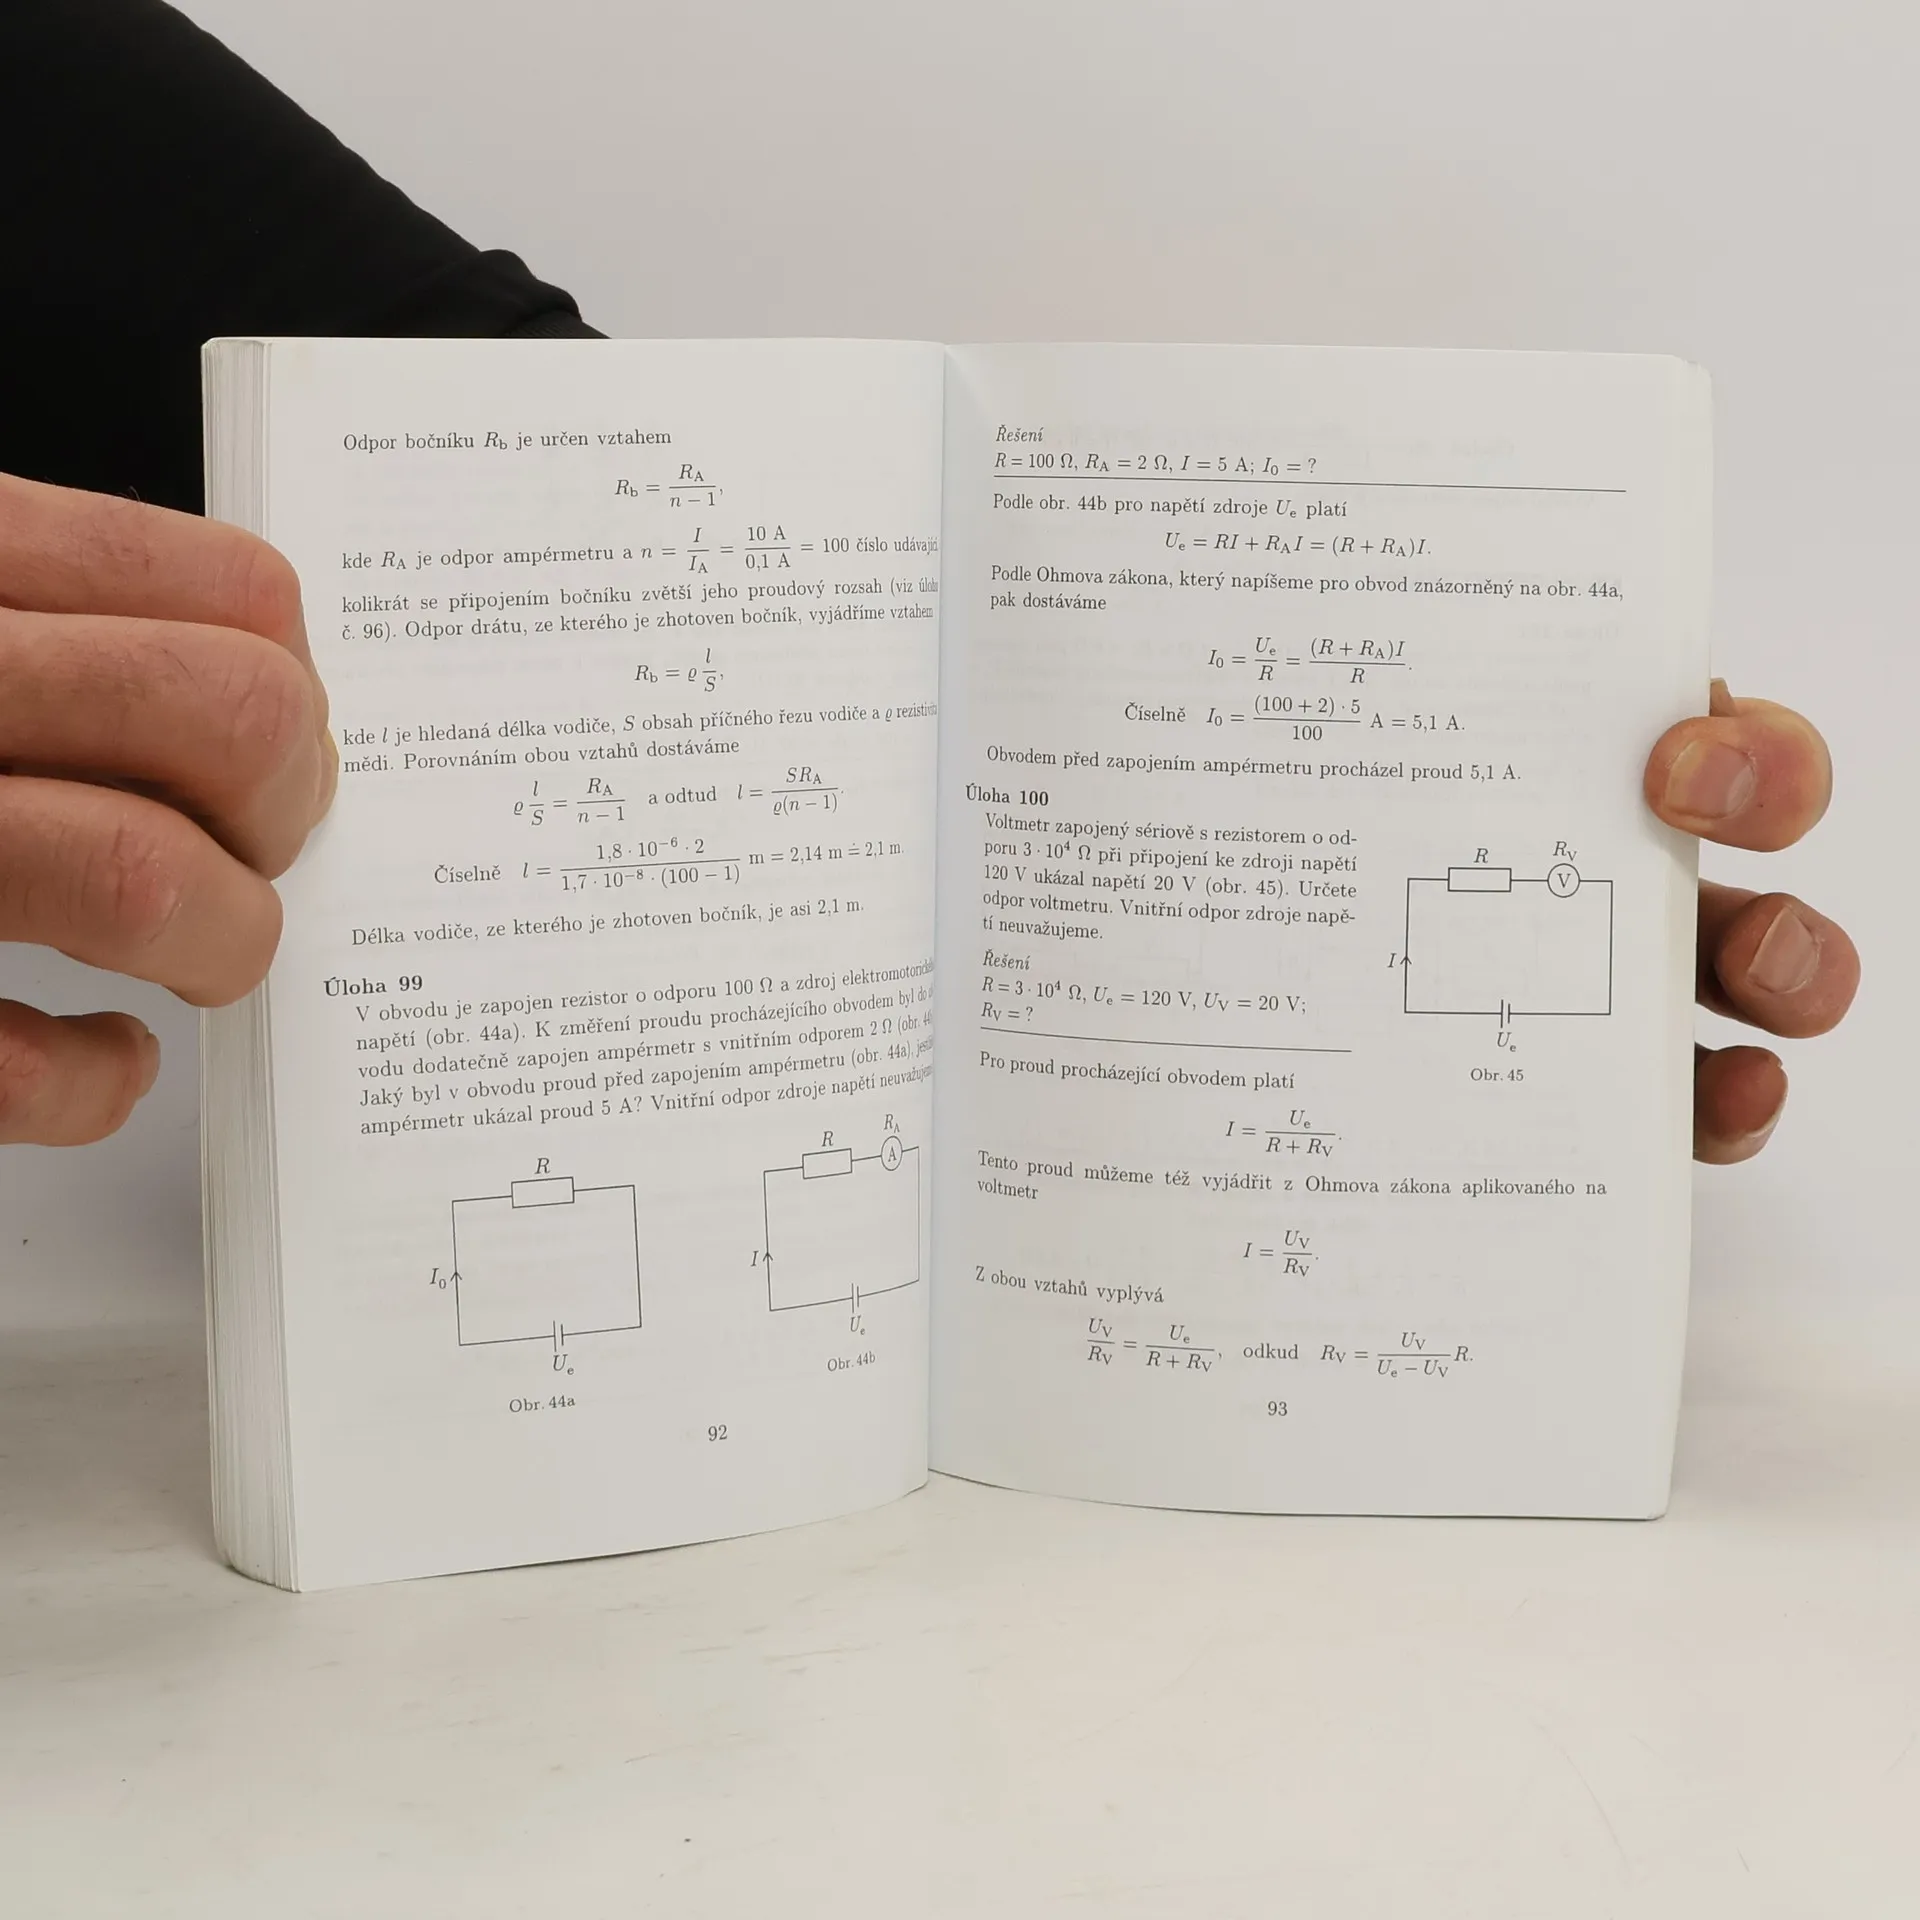 Odpor bočníku R_b je určen vztahem
R_b = R_A / (n − 1),
kde R_A je odpor ampérmetru a n = I / I_A = 10 A / 0,1 A = 100 číslo
kolikrát se připojením bočníku zvětší jeho proudový rozsah (viz
č. 96). Odpor drátu, ze kterého je zhotoven bočník, vyjádříme vztahem
R_b = ϱ l / S,
kde l je hledaná délka vodiče, S obsah příčného řezu vodiče a ϱ
mědi. Porovnáním obou vztahů dostáváme
ϱ l / S = R_A / (n − 1) a odtud l = S R_A / ϱ(n − 1).
Číselně l = 1,8 · 10⁻⁶ · 2 / 1,7 · 10⁻⁸ · (100 − 1) m = 2,14 m ≐ 2,1 m.
Délka vodiče, ze kterého je zhotoven bočník, je asi 2,1 m.
Úloha 99
V obvodu je zapojen rezistor o odporu 100 Ω a zdroj
napětí (obr. 44a). K změření proudu procházejícího obvodem byl do
vodu dodatečně zapojen ampérmetr s vnitřním odporem 2 Ω (obr.
Jaký byl v obvodu proud před zapojením ampérmetru (obr. 44a),
ampérmetr ukázal proud 5 A? Vnitřní odpor zdroje napětí
R
I₀
U_e
Obr. 44a
R
R_A
A
I
U_e
Obr. 44b
92
Řešení
R = 100 Ω, R_A = 2 Ω, I = 5 A; I₀ = ?
Podle obr. 44b pro napětí zdroje U_e platí
U_e = RI + R_A I = (R + R_A)I.
Podle Ohmova zákona, který napíšeme pro obvod znázorněný na obr. 44a,
pak dostáváme
I₀ = U_e / R = (R + R_A)I / R.
Číselně I₀ = (100 + 2) · 5 / 100 A = 5,1 A.
Obvodem před zapojením ampérmetru procházel proud 5,1 A.
Úloha 100
Voltmetr zapojený sériově s rezistorem o od-
poru 3 · 10⁴ Ω při připojení ke zdroji napětí
120 V ukázal napětí 20 V (obr. 45). Určete
odpor voltmetru. Vnitřní odpor zdroje napě-
tí neuvažujeme.
Řešení
R = 3 · 10⁴ Ω, U_e = 120 V, U_V = 20 V;
R_V = ?
R
R_V
V
I
U_e
Obr. 45
Pro proud procházející obvodem platí
I = U_e / (R + R_V).
Tento proud můžeme též vyjádřit z Ohmova zákona aplikovaného na
voltmetr
I = U_V / R_V.
Z obou vztahů vyplývá
U_V / R_V = U_e / (R + R_V), odkud R_V = U_V / (U_e − U_V) R.
93